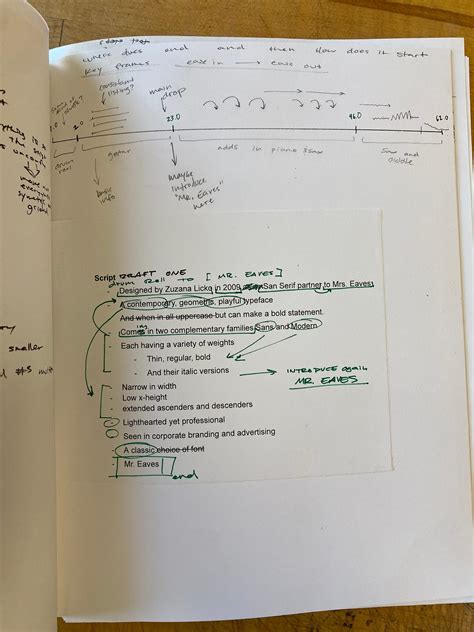 where does end and and then How does it start
Key frames ease in → ease out
consistent
listing?
main
drop
2.0 23.0 46.0 61.0
drum
roll
guitar
adds in piano
saw and
fiddle
basic
info
maybe
introduce
"Mr. Eaves"
here
Script DRAFT ONE
drum roll to [MR. EAVES]
Designed by Zuzana Licko in 2009 San Serif partner to Mrs. Eaves
- A contemporary, geometric, playful typeface
- And when in all uppercase but can make a bold statement.
- Comes ing in two complementary families Sans and Modern
- Each having a variety of weights
- Thin, regular, bold
- And their italic versions → INTRODUCE again
MR. EAVES
- Narrow in width
- Low x-height
- extended ascenders and descenders
- Lighthearted yet professional
- Seen in corporate branding and advertising
- A classic choice of font
- Mr. Eaves
end
smaller